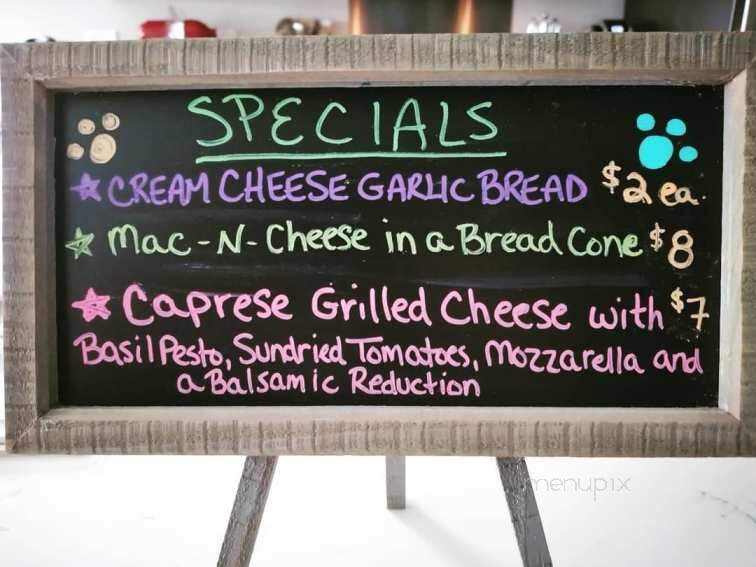 SPECIALS
CREAM CHEESE GARLIC BREAD $2 ea.
Mac-N-Cheese in a Bread Cone $8
Caprese Grilled Cheese with $7
Basil Pesto, Sundried Tomatoes, Mozzarella and
a Balsamic Reduction
menupix